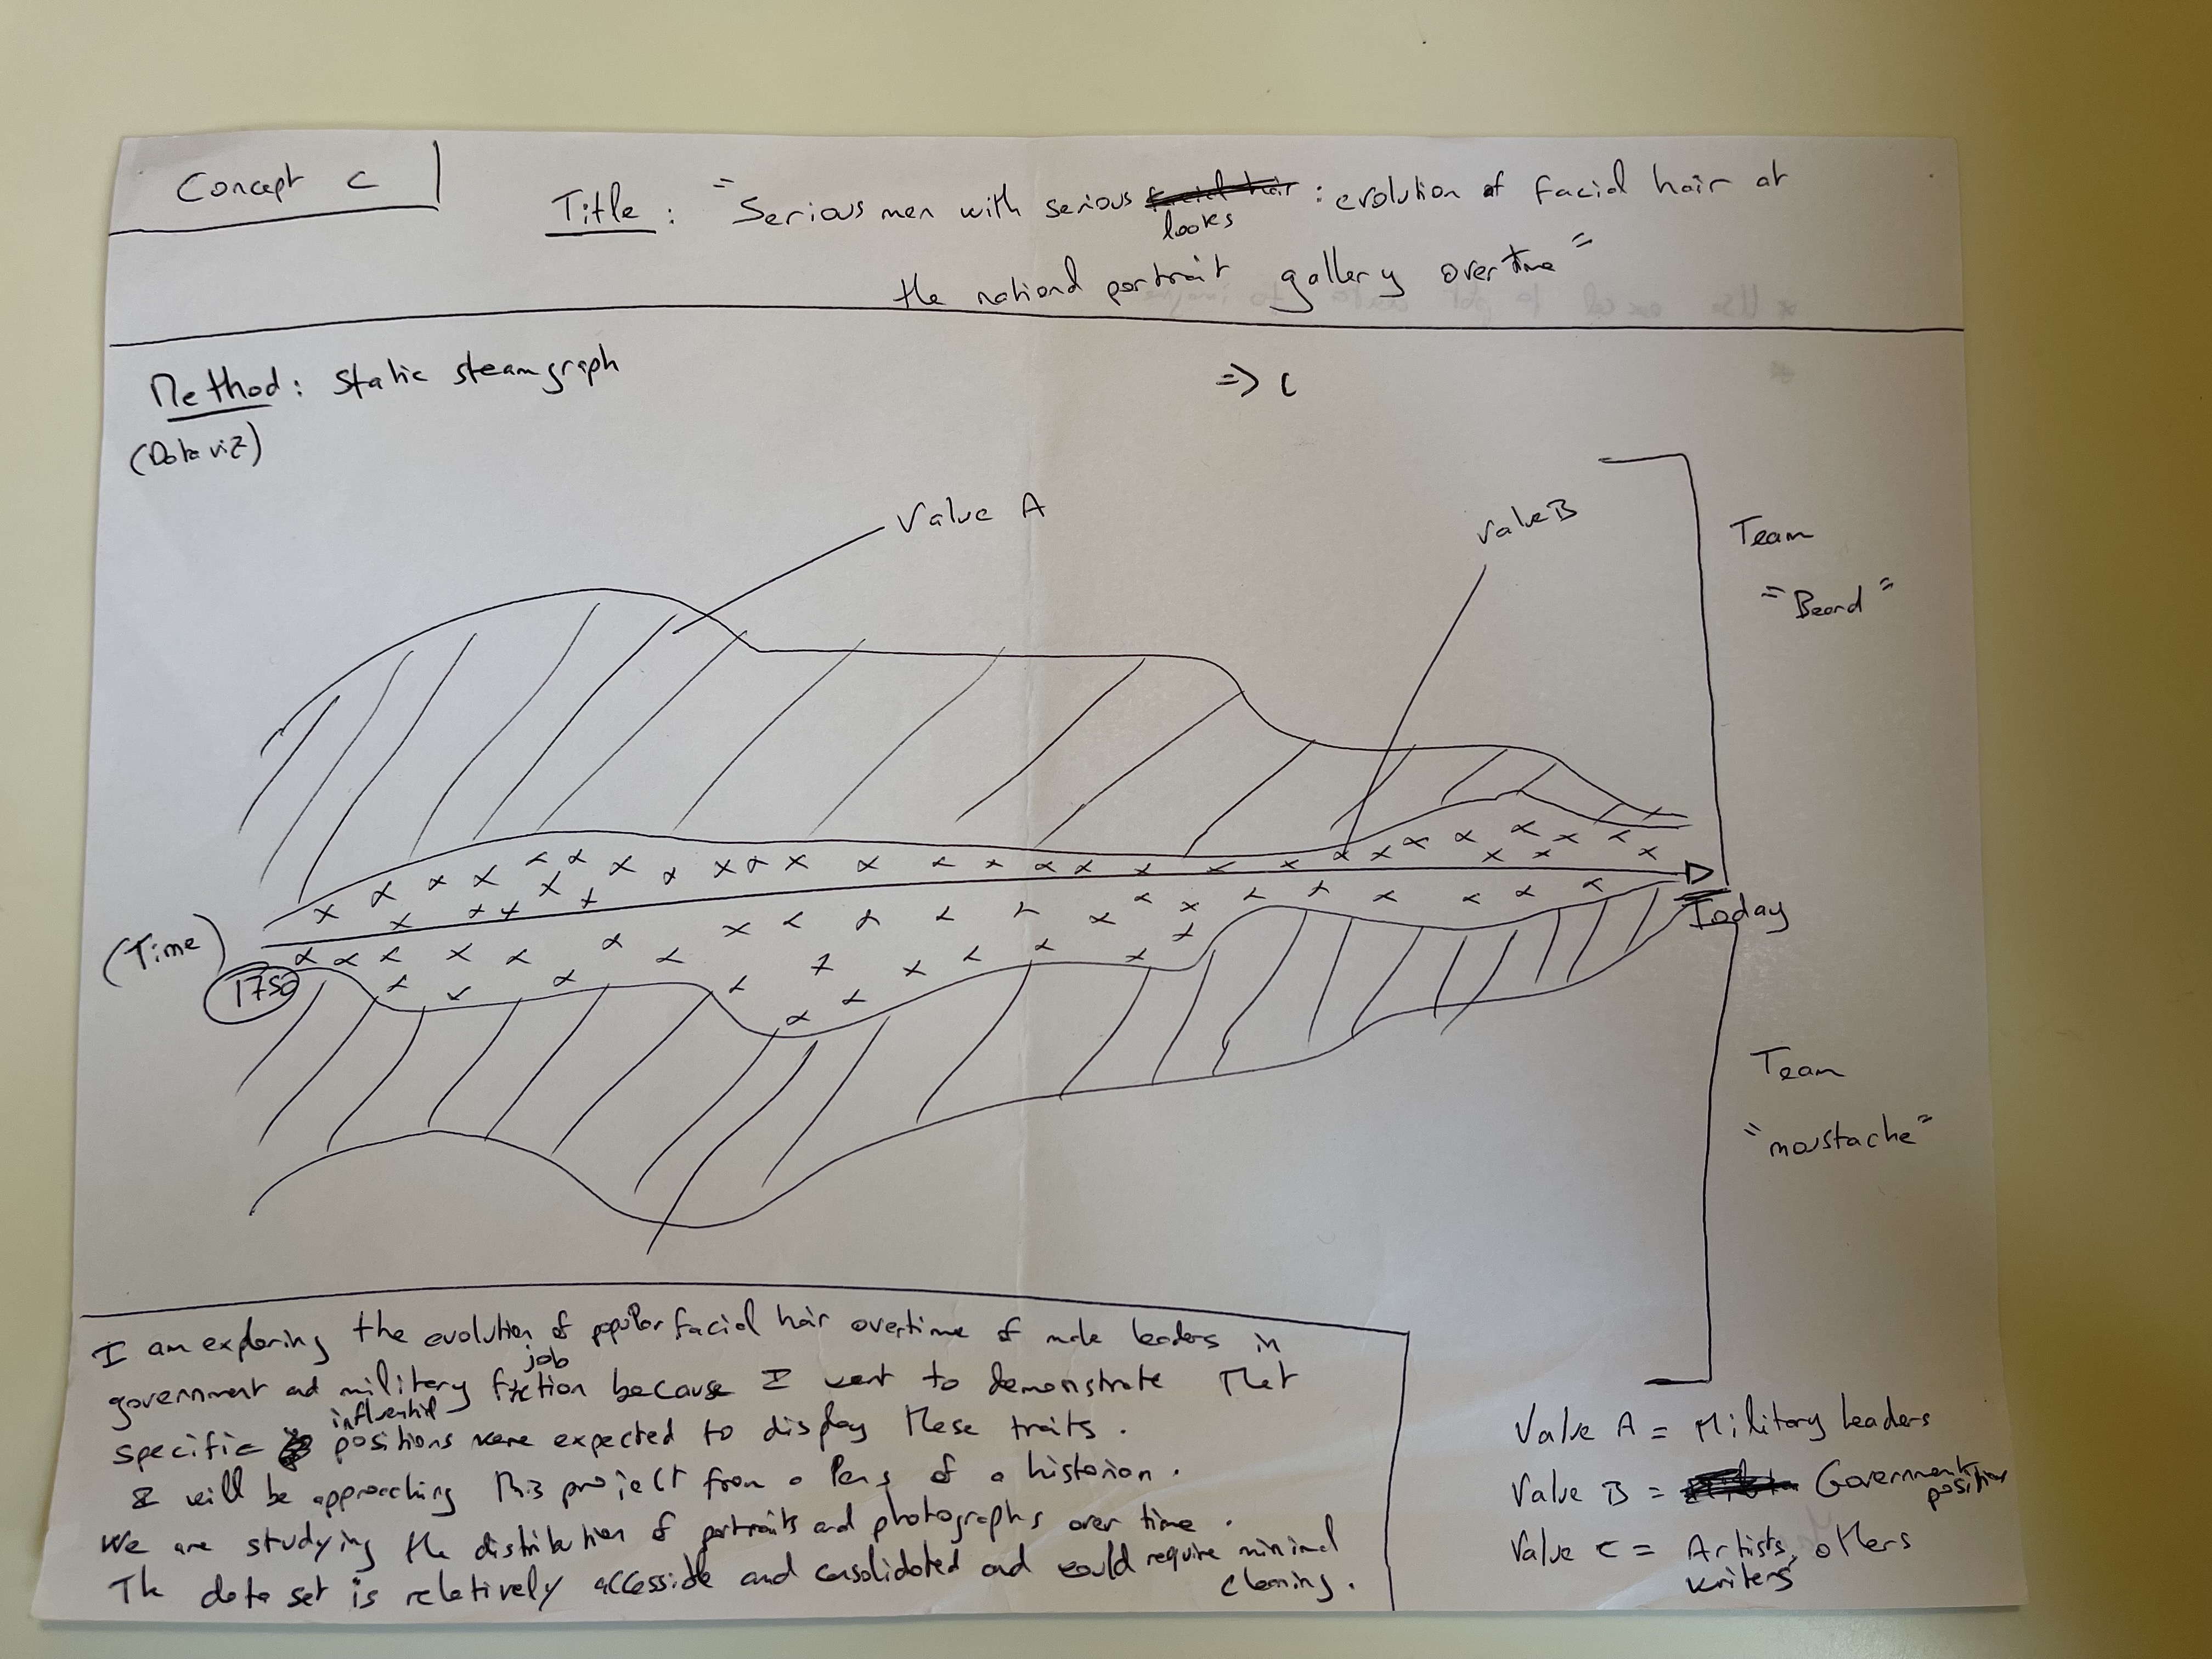 Concept C
Title : "Serious men with serious looks : evolution of facial hair at
the national portrait gallery over time"
Method : static steamgraph
(Data viz)
=> C
Value A
Value B
Team
"Beard"
(Time)
1750
Today
Team
"moustache"
I am exploring the evolution of popular facial hair overtime of male leaders in
government and military job because I want to demonstrate that
specific influential positions were expected to display these traits.
I will be approaching this project from a lens of a historian.
We are studying the distribution of portraits and photographs over time.
The data set is relatively accessible and consolidated and would require minimal
cleaning.
Value A = Military leaders
Value B = Government position
Value C = Artists, others
writers